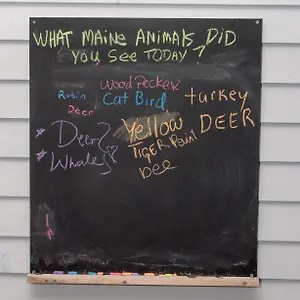 WHAT MAINE ANIMALS DID
YOU SEE TODAY?
WOODPECKER
Robin
Cat Bird
turkey
Deer
DEER
Yellow
TIGER
Deer?
* Whales?
Dee